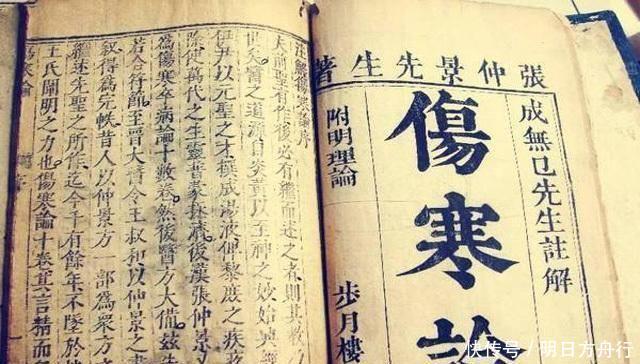 張仲景先生著
成無已先生註解
傷寒論
附明理論
步月樓
註解傷寒論序
夫前聖有作後必有繼而述之者則其教乃
世矣醫之道源自炎黃以至神之妙始興
伊尹以元聖之才撰成湯液俾黎庶之疾
除使萬代之生靈普蒙拯濟後漢張仲景
為傷寒卒病論十數卷然後醫方大備茲
若合符節至晉太醫令王叔和以仲景之書
敘得為完帙昔人以仲景方一部為眾方
繼述先聖之所作迄今千有餘年不墜於
王氏闡明之力也傷寒論十卷其言精而
快传号/明日方舟行